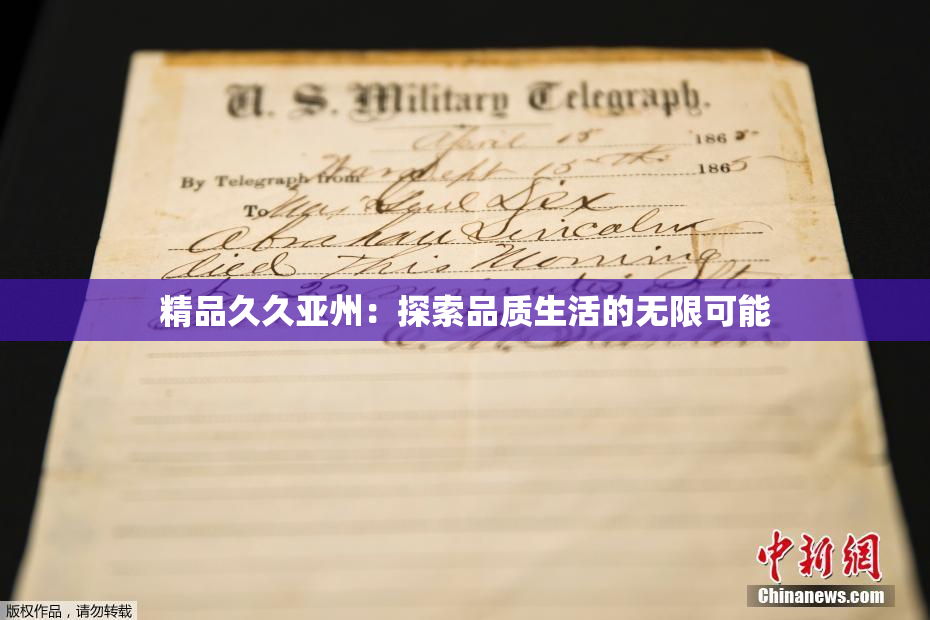 U. S. Military Telegraph.
April 15 1865
By Telegraph from War Dept 15th 1865
To Maj Genl Dix
Abraham Lincoln
died This Morning
at 22 minutes after
精品久久亚州：探索品质生活的无限可能
中新網
Chinanews.com
版权作品，请勿转载